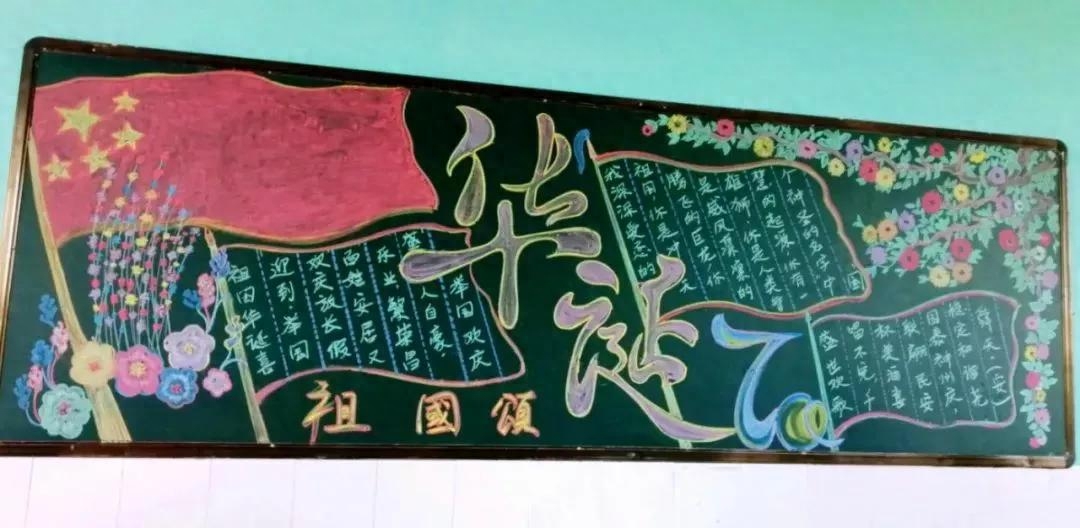 华诞
70
祖國頌
祖国华诞喜
迎到举国
欢庆放长假
百姓安居又
乐业繁荣昌
盛人自豪,
举国欢庆
我深深爱恋的
祖国 你是冲天
腾飞的巨龙 你
是威风凛凛的
雄狮 你是人类智
慧的起源 你有一
个神圣的名字中
国
盛世欢歌
唱不完,千
秋美酒喜
民安
国泰神州庆,
稳定和谐花